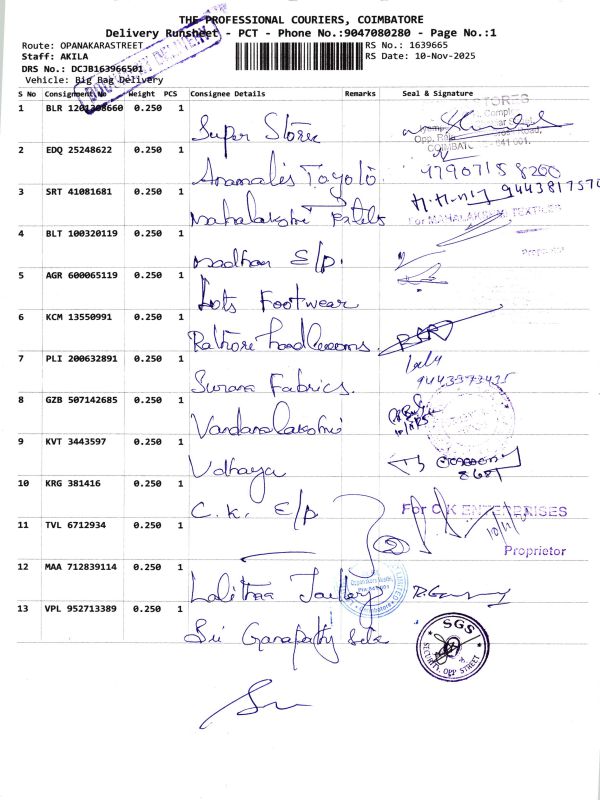 THE PROFESSIONAL COURIERS, COIMBATORE
Delivery Runsheet - PCT - Phone No.:9047080280 - Page No.:1
Route: OPANAKARASTREET
RS No.: 1639665
Staff: AKILA
RS Date: 10-Nov-2025
DRS No.: DCJB163966501
Vehicle: Big Bag Delivery
S No Consignment No Weight PCS Consignee Details Remarks Seal & Signature
1 BLR 1201308660 0.250 1 Super Store
2 EDQ 25248622 0.250 1 Anamalais Toyoto
47907158200
3 SRT 41081681 0.250 1 Mahalakshmi
9443817570
For MAHALAKSHMI TEXTILES
4 BLT 100320119 0.250 1 Madhan E/p.
5 AGR 600065119 0.250 1 Lots Footwear
6 KCM 13550991 0.250 1 Rathore handlooms
7 PLI 200632891 0.250 1 Surana Fabrics.
9443373435
8 GZB 507142685 0.250 1 Vardanalakshmi
9 KVT 3443597 0.250 1 Udhaya
8681
10 KRG 381416 0.250 1 C.K. E/p
For C K ENTERPRISES
11 TVL 6712934 0.250 1
Proprietor
12 MAA 712839114 0.250 1 Lalitha
13 VPL 952713389 0.250 1 Sri Ganapathy
SGS
SECURITY, OPP STREET